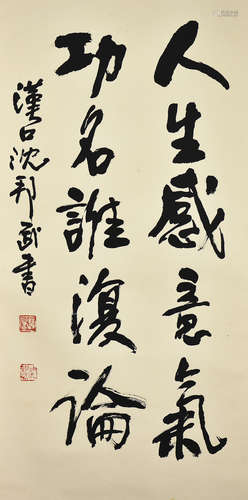 人生感意氣
功名誰復論
漢口沈邦武書